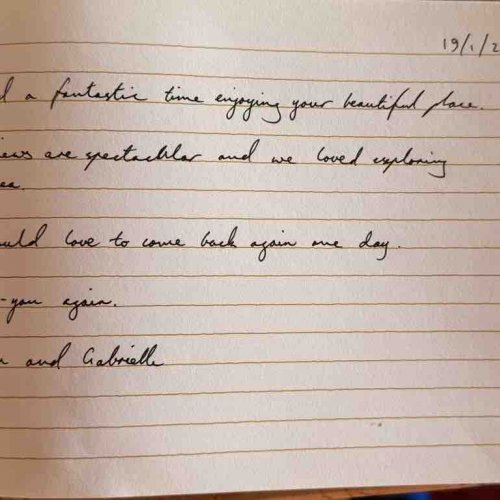 19/1/2
a fantastic time enjoying your beautiful place.
are spectacular and we loved exploring
love to come back again one day.
-you again.
and Gabrielle